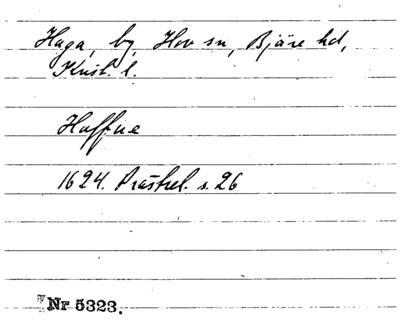 Haga, by, Hov sn, Bjäre hd,
Krist. l.
Haffue
1624. Prästrel. s. 26
Nr 5323.